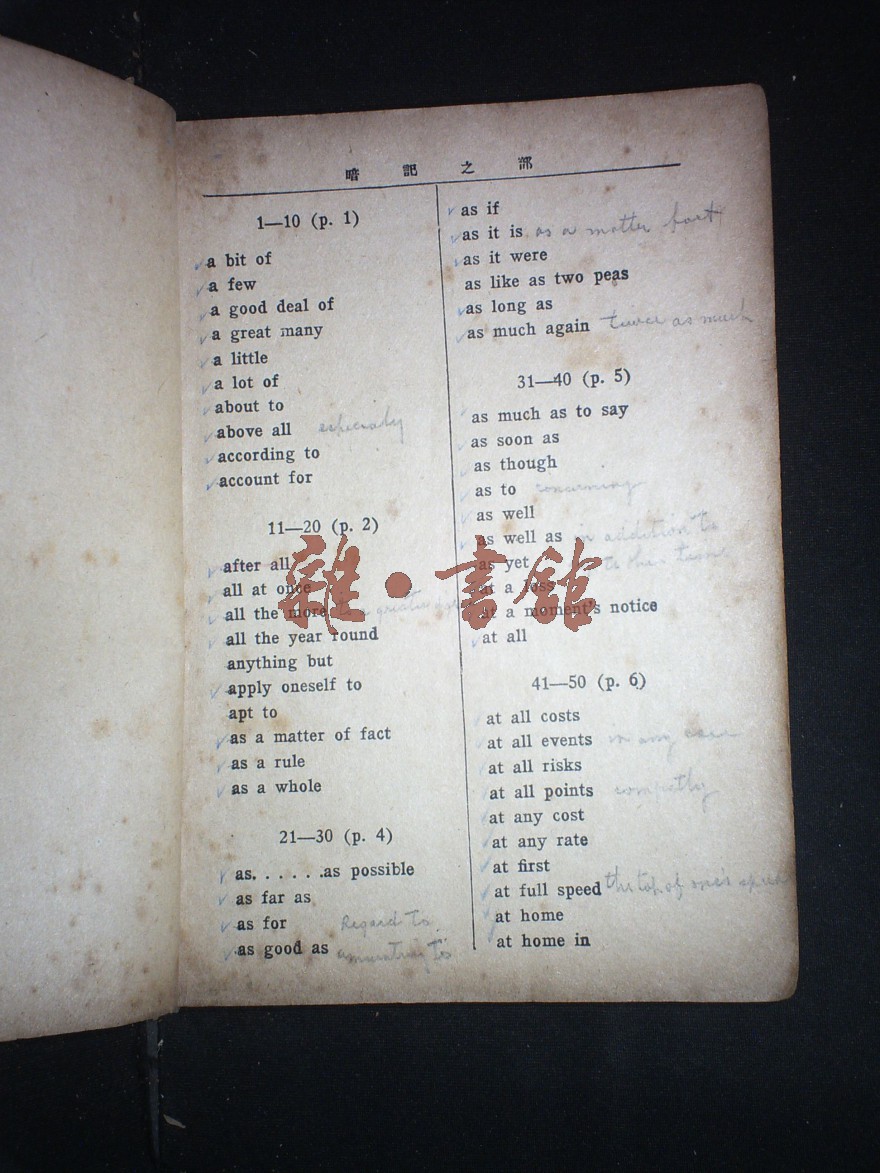 暗記之部
1—10 (p. 1)
a bit of
a few
a good deal of
a great many
a little
a lot of
about to
above all especially
according to
account for
11—20 (p. 2)
after all
all at once
all the more
all the year round
anything but
apply oneself to
apt to
as a matter of fact
as a rule
as a whole
21—30 (p. 4)
as. . . . . .as possible
as far as
as for Regard to
as good as amounting to
as if
as it is as a matter fact
as it were
as like as two peas
as long as
as much again twice as much
31—40 (p. 5)
as much as to say
as soon as
as though
as to concerning
as well
as well as in addition to
as yet
at a loss
at a moment's notice
at all
41—50 (p. 6)
at all costs
at all events in any case
at all risks
at all points
at any cost
at any rate
at first
at full speed the top of one's speed
at home
at home in
雜·書館